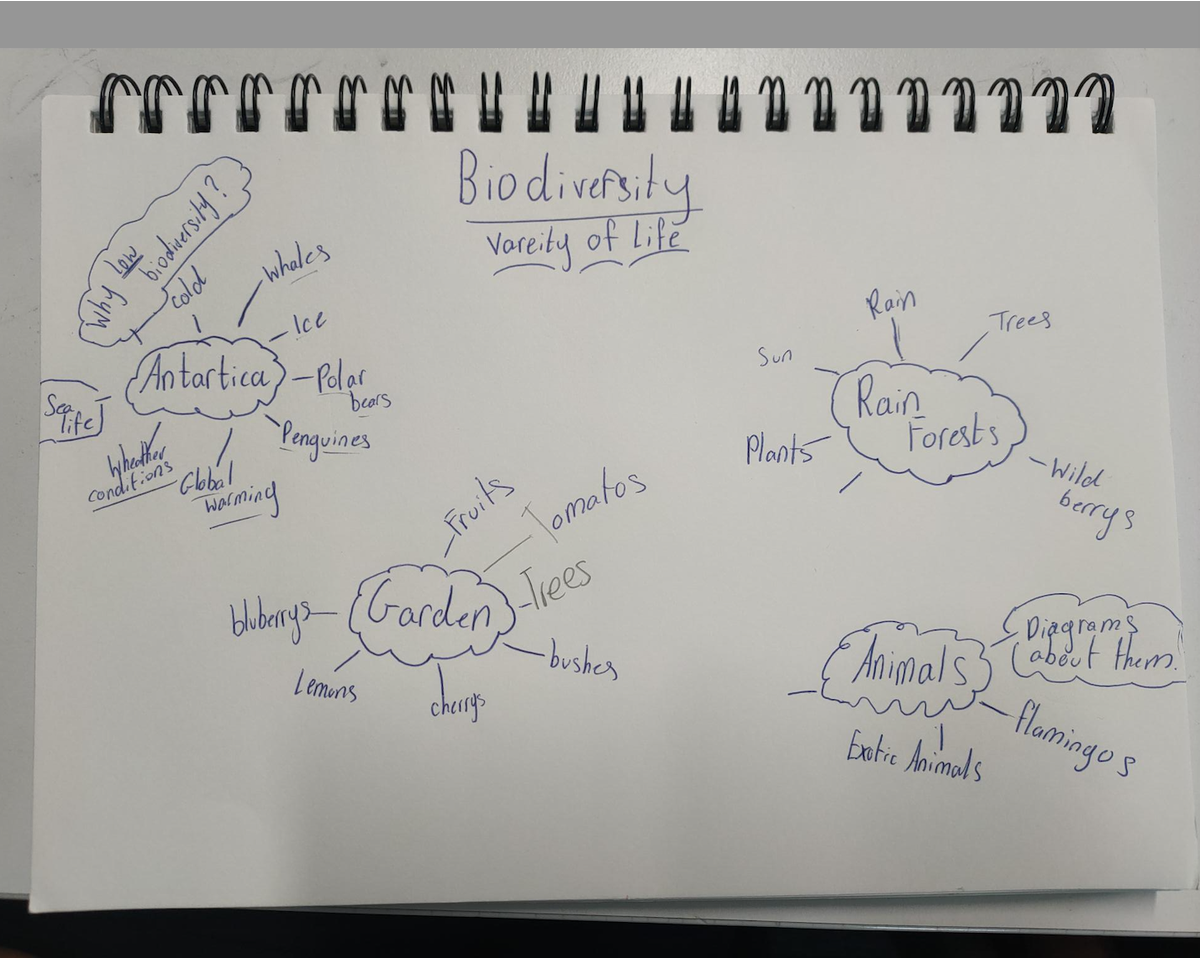 Biodiversity
vareity of life
Why low
biodiversity?
cold
Whales
Ice
Antartica
Polar
bears
Penguines
Sea
life
Wheather
conditions
Global
warming
Rain
Trees
Sun
Rain
Forests
Plants
Wild
berrys
Fruits
Tomatos
Trees
Garden
bluberrys
bushes
Lemons
cherrys
Diagrams
about them.
Animals
flamingos
Exotic Animals